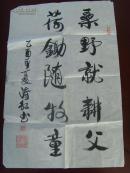 桑野就耕父
荷鋤随牧童
乙酉年夏